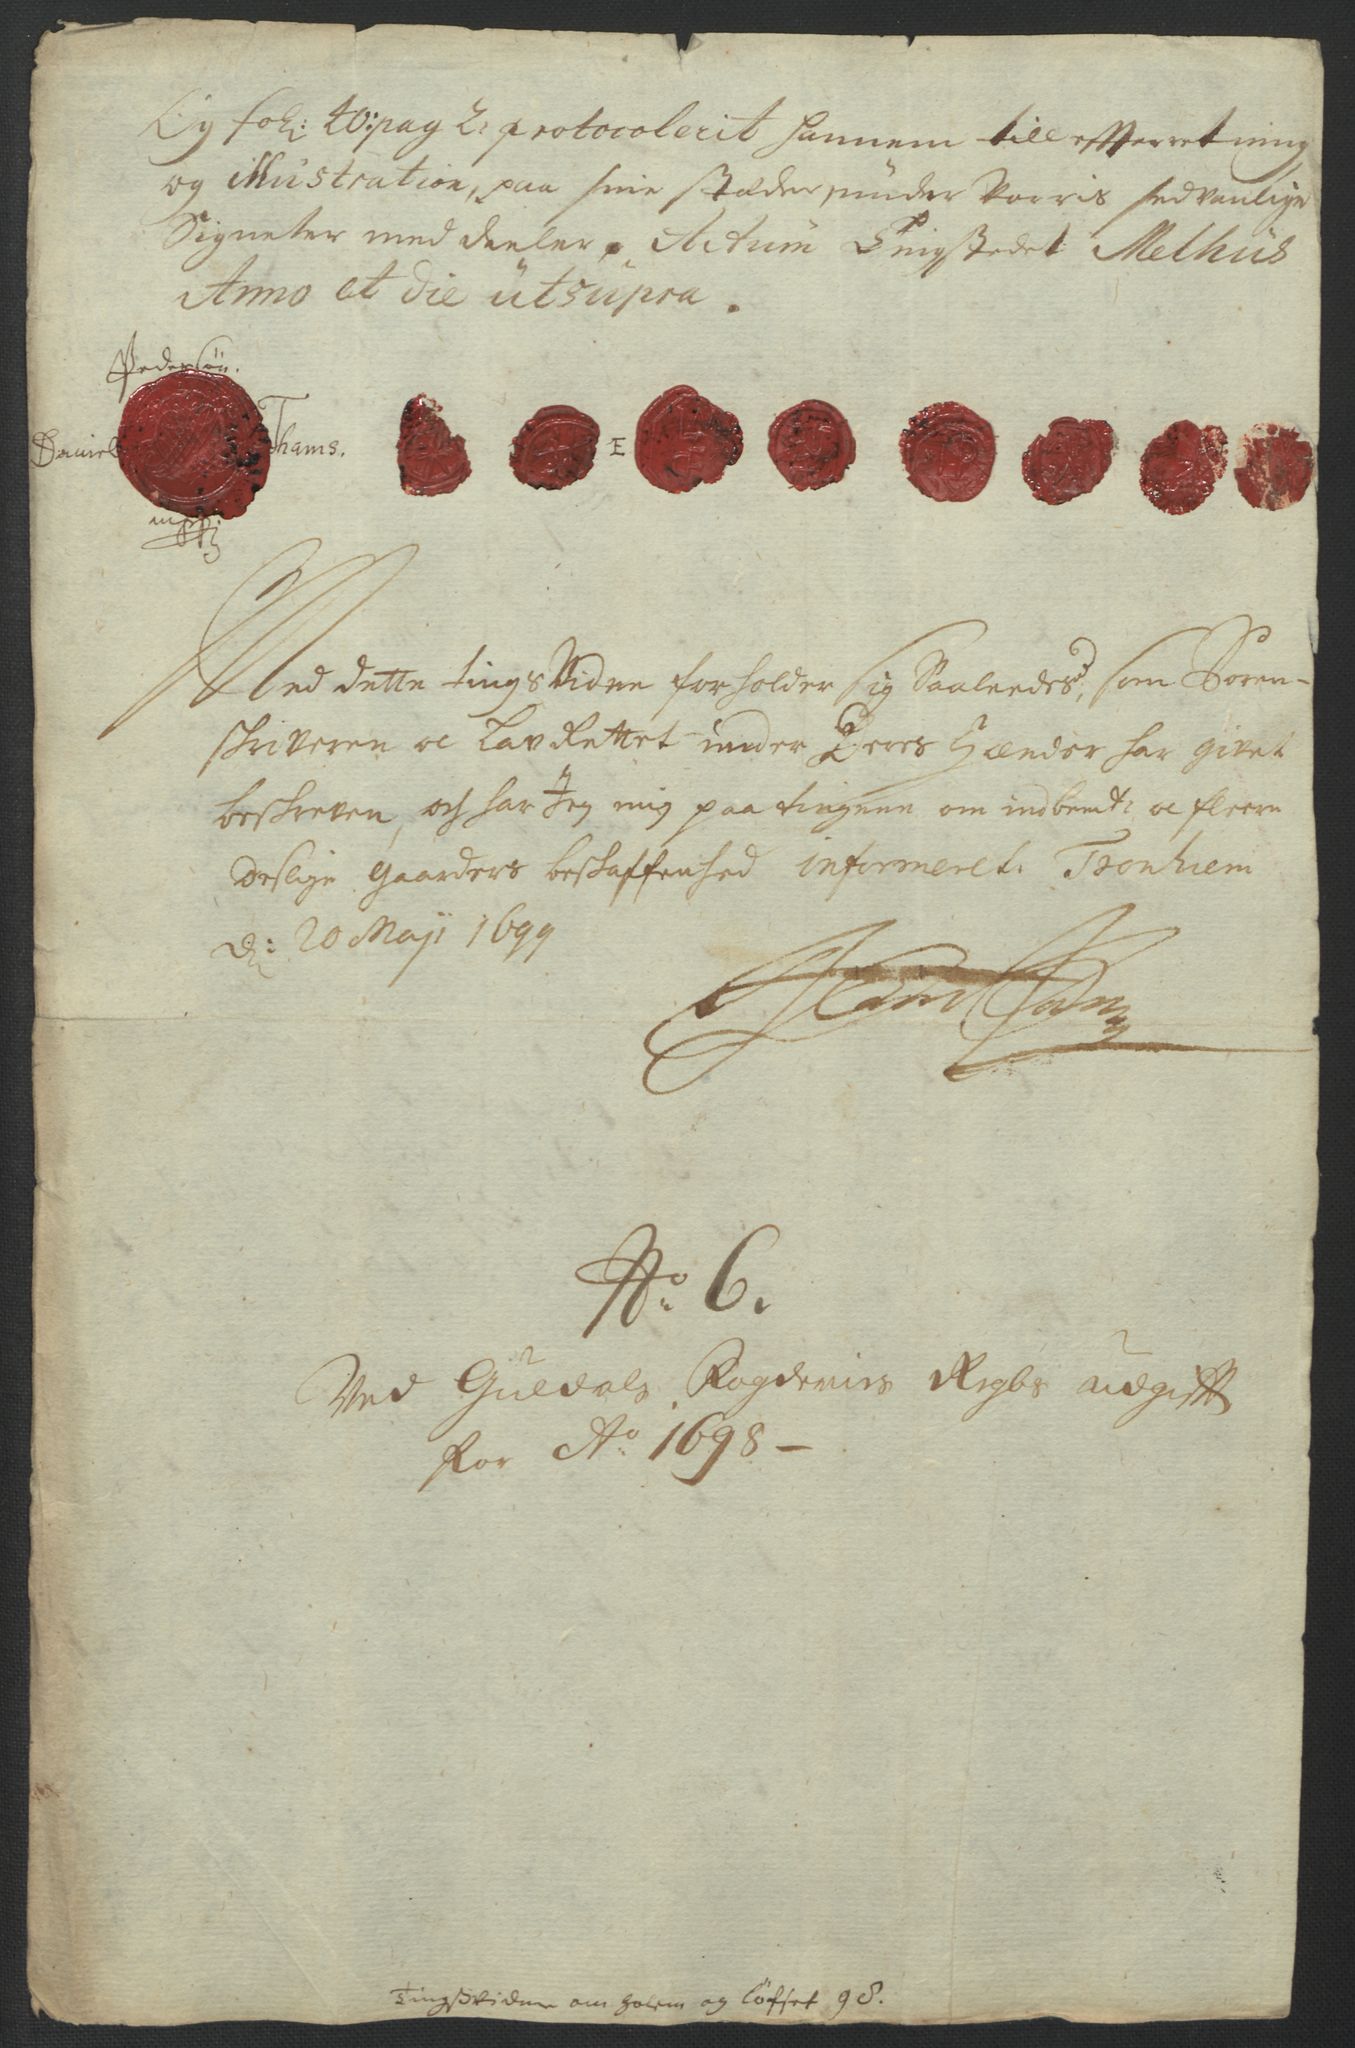 og fol: 20: pag 2: protocolerit hannem till effterretning
og illustration, paa sine stæder, under Vorris sedvanlige
Signeter med deeler. Actum Tingstedet Melhus
Anno et die utsupra.
Pedersøn.
Daniel Thams.
E
mpp
Med dette tings Vidne forholder sig Saaleedes, som Soren-
skriveren oc LavRettet under Deres Hænder har givet
beskreven, och har Jeg mig paa tingene om indbemt: oc fleere
deslige Gaarders beskaffenhed informeret. Tronhiem
d: 20 Maji 1699
No. 6.
Ved Guldals Fogderies Regbs udgifft
for Ao. 1698 –
Tingsvidne om Holem og Løfset 98.